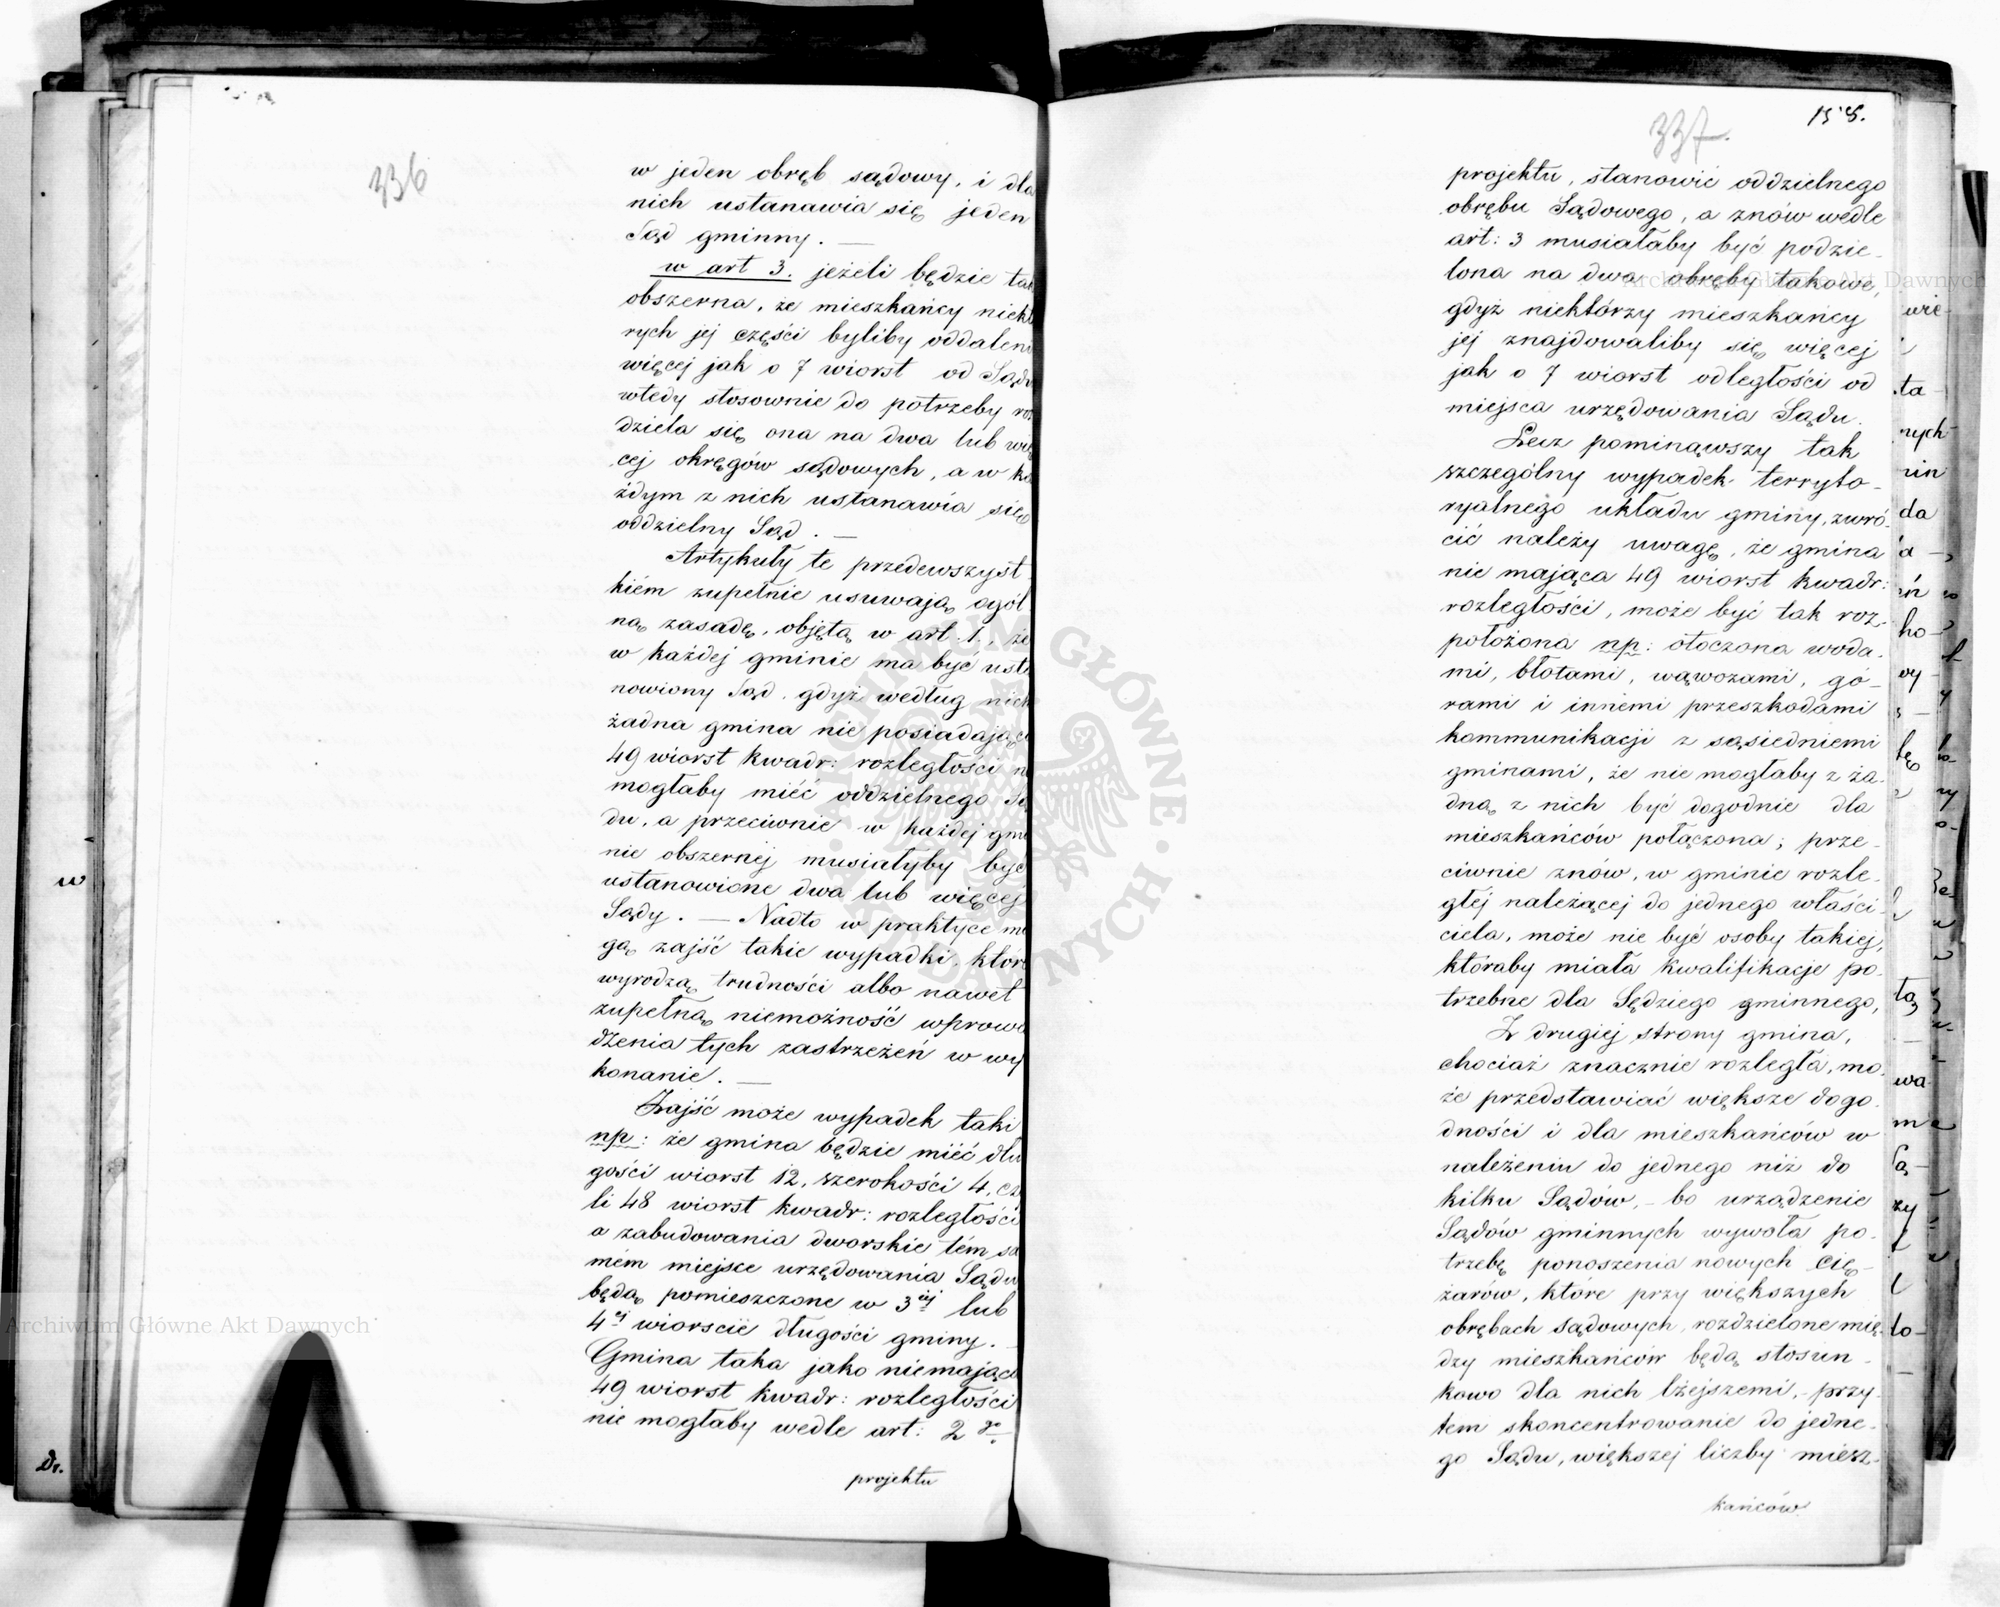 336
w jeden obręb sądowy, i dla
nich ustanawia się jeden
Sąd gminny. —
w art 3. jeżeli będzie tak
obszerna, że mieszkańcy niektó
rych jej części byliby oddaleni
więcej jak o 7 wiorst od Sądu
wtedy stosownie do potrzeby roz
dziela się ona na dwa lub wię
cej okręgów sądowych, a w ka
żdym z nich ustanawia się
oddzielny Sąd. —
Artykuły te przedewszyst
kiém zupełnie usuwają ogól
ną zasadę, objętą w art. 1., że
w każdej gminie ma być usta
nowiony Sąd, gdyż według nich
żadna gmina nie posiadająca
49 wiorst kwadr: rozległości nie
mogłaby miéć oddzielnego Są
du, a przeciwnie w każdej gmi
nie obszernéj musiałyby być
ustanowione dwa lub więcej
Sądy. — Nadto w praktyce mo
gą zajść takie wypadki, które
wyrodzą trudności albo nawet
zupełną niemożność wprowa
dzenia tych zastrzeżeń w wy
konanie. —
Zajść może wypadek taki
np: że gmina będzie miéć dłu
gości wiorst 12, szerokości 4, czy
li 48 wiorst kwadr: rozległości
a zabudowania dworskie tém sa
mém miejsce urzędowania Sądu
będą pomieszczone w 3iéj lub
4éj wiorscie długości gminy.
Gmina taka jako niemająca
49 wiorst kwadr: rozległości
nie mogłaby wedle art: 2go
projektu
158.
337.
projektu, stanowić oddzielnego
obrębu Sądowego, a znów wedle
art: 3 musiałaby być podzie-
lona na dwa obręby takowe,
gdyż niektórzy mieszkańcy
jéj znajdowaliby się więcej
jak o 7 wiorst odległości od
miejsca urzędowania Sądu.
Lecz pominąwszy tak
szczególny wypadek terryto-
ryalnego układu gminy, zwró-
cić należy uwagę, że gmina
nie mająca 49 wiorst kwadr:
rozległości, może być tak roz-
położona np: otoczona woda-
mi, błotami, wąwozami, gó-
rami i innemi przeszkodami
kommunikacji z sąsiedniemi
gminami, że nie mogłaby z ża-
dną z nich być dogodnie dla
mieszkańców połączona; prze-
ciwnie znów, w gminie rozle-
głéj należącej do jednego właści-
ciela, może nie być osoby takiej,
któraby miała kwalifikacje po-
trzebne dla Sędziego gminnego,
Z drugiej strony gmina,
chociaż znacznie rozległa, mo-
że przedstawiać większe dogo-
dności i dla mieszkańców w
należeniu do jednego niż do
kilku Sądów, – bo urządzenie
Sądów gminnych wywoła po-
trzebę ponoszenia nowych cię-
żarów, które przy większych
obrębach sądowych, rozdzielone mię-
dzy mieszkańców będą stosun-
kowo dla nich lżejszemi, – przy-
tem skoncentrowanie do jedne-
go Sądu, większej liczby miesz-
kańców
Archiwum Główne Akt Dawnych
Archiwum Główne Akt Dawnych
ARCHIWUM GŁÓWNE AKT DAWNYCH